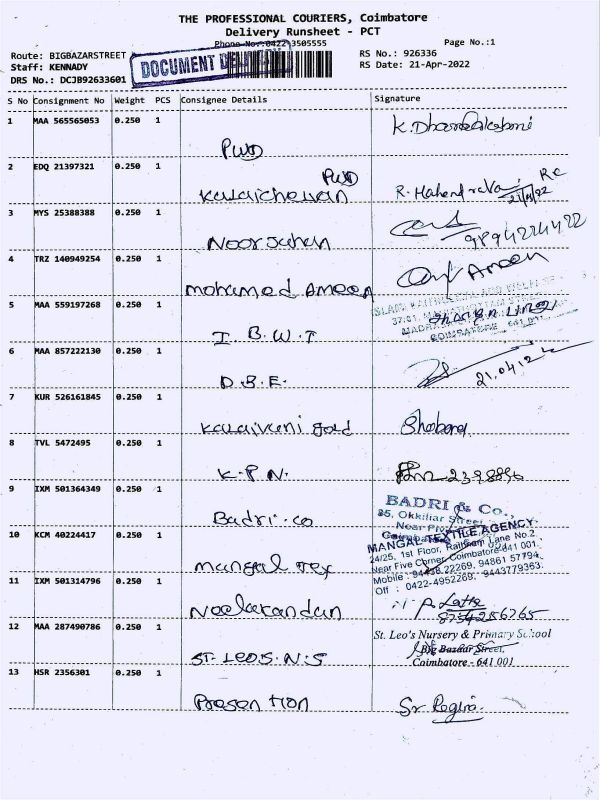 THE PROFESSIONAL COURIERS, Coimbatore
Delivery Runsheet - PCT
Phone No:0422 3505555
Page No.:1
Route: BIGBAZARSTREET
RS No.: 926336
Staff: KENNADY
RS Date: 21-Apr-2022
DRS No.: DCJB92633601
DOCUMENT
S No Consignment No Weight PCS Consignee Details Signature
1 MAA 565565053 0.250 1
PWD
2 EDQ 21397321 0.250 1
PWD
R. Mahendra
3 MYS 25388388 0.250 1
Noorjahan
9894224422
4 TRZ 140949254 0.250 1
mohamed Ameen
Ameen
5 MAA 559197268 0.250 1
I.B.W.T
6 MAA 857222130 0.250 1
D.B.E.
21.04.22
7 KUR 526161845 0.250 1
Kalaivani gold Shobana
8 TVL 5472495 0.250 1
K.P.N.
9 IXM 501364349 0.250 1
Badri.co
BADRI & Co.,
85, Okkiliar Street,
10 KCM 40224417 0.250 1
mangal Tex
MANGAL TEXTILE AGENCY
24/25, 1st Floor, Rathnam Lane No.2,
Near Five Corner, Coimbatore-641 001.
Mobile : 94438 22269, 94861 57794
Off : 0422-4952269, 9443779363
11 IXM 501314796 0.250 1
Neelakandan
P. Latha
8754286765
12 MAA 287490786 0.250 1
ST. LEOS. N. S
St. Leo's Nursery & Primary School
Big Bazaar Street,
Coimbatore - 641 001
13 HSR 2356301 0.250 1
Presention
Sr Regina.